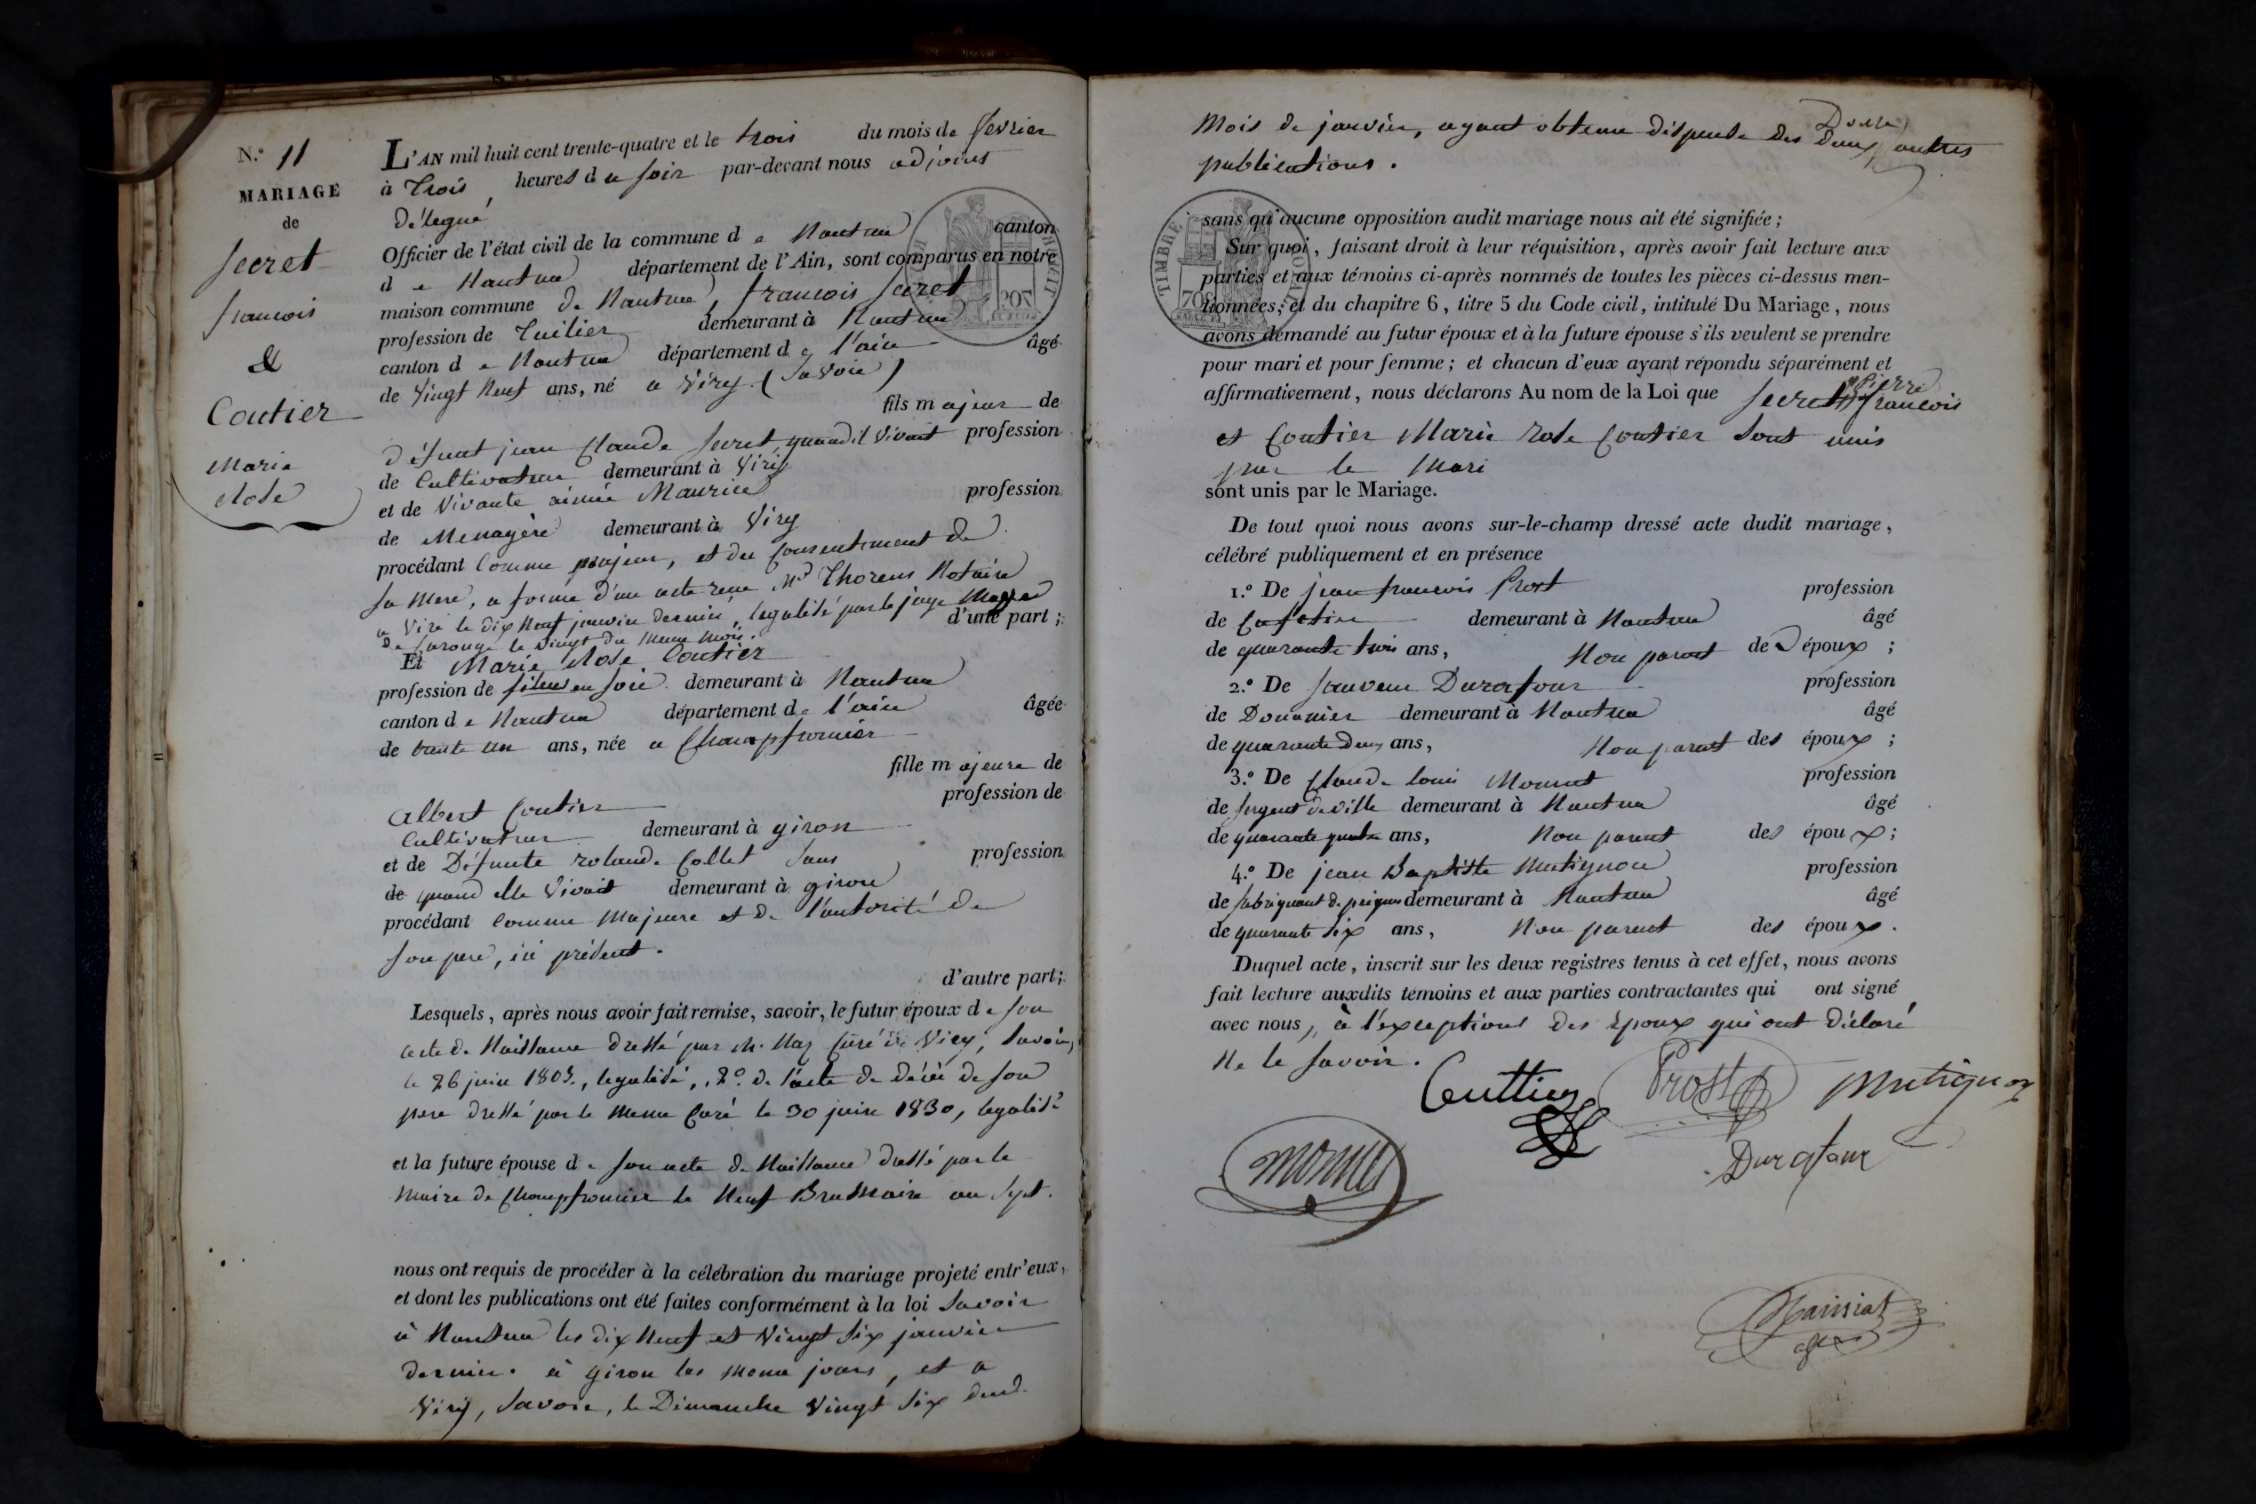 N.º 11
MARIAGE
de
Secret
francois
&
Coutier
Marie
Rose
L'AN mil huit cent trente-quatre et le trois du mois de fevrier
à Trois heures du soir par-devant nous adjoint
délegué
Officier de l'état civil de la commune de Nantua canton
de Nantua département de l'Ain, sont comparus en notre
maison commune de Nantua, francois Secret
profession de Tuilier demeurant à Nantua
canton de Nantua département de l'ain âgé
de Vingt Neuf ans, né a Viry (Savoie)
fils majeur de
défunt jean Claude Secret quand il Vivait profession
de Cultivateur demeurant à Viry
et de Vivante aimée Maurice profession
de Menagère demeurant à Viry
procédant Comme majeur, et du Consentement de
sa Mere, a forme d'un acte reçu Me Thorens Notaire
a Viri le dix Neuf janvier dernier, legalisé par le juge Mage
de Carouge le Vingt du Meme Mois. d'une part;
Et Marie Rose Coutier
profession de fileuse en soie demeurant à Nantua
canton de Nantua département de l'ain âgée
de trente un ans, née a Champfromier
fille majeure de
Albert Coutier profession de
Cultivateur demeurant à giron
et de Défunte rolande Collet sans profession
de quand elle Vivait demeurant à giron
procédant Comme Majeure et de l'autorité de
son pere, ici présent.
d'autre part;
Lesquels, après nous avoir fait remise, savoir, le futur époux de son
acte de Naissance dressé par M. Curé de Viry, Savoie,
le 26 juin 1805, legalisé, 2º de l'acte de décés de son
pere dressé par le meme Curé le 30 juin 1830, legalisé
et la future épouse de son acte de Naissance dressé par le
Maire de Champfromier le Neuf Brumaire an Sept.
nous ont requis de procéder à la célébration du mariage projeté entr'eux,
et dont les publications ont été faites conformément à la loi Savoir
à Nantua les dix Neuf et Vingt Six janvier
dernier. à giron les meme jours, et a
Viry, Savoie, le Dimanche Vingt Six dud.
Mois de janvier, ayant obtenu dispense des deux autres
publications.
TIMBRE ROYAL
sans qu'aucune opposition audit mariage nous ait été signifiée;
Sur quoi, faisant droit à leur réquisition, après avoir fait lecture aux
parties et aux témoins ci-après nommés de toutes les pièces ci-dessus men-
tionnées, et du chapitre 6, titre 5 du Code civil, intitulé Du Mariage, nous
avons demandé au futur époux et à la future épouse s'ils veulent se prendre
pour mari et pour femme; et chacun d'eux ayant répondu séparément et
affirmativement, nous déclarons Au nom de la Loi que Secret Pierre francois
et Coutier Marie Rose Coutier Sont unis
par le Mari
sont unis par le Mariage.
De tout quoi nous avons sur-le-champ dressé acte dudit mariage,
célébré publiquement et en présence
1.º De jean francois Prost profession
de Cafetier demeurant à Nantua âgé
de quarante trois ans, Non parent des époux;
2.º De Sauveur Durafour profession
de Douanier demeurant à Nantua âgé
de quarante deux ans, Non parent des époux;
3.º De Claude louis Monnet profession
de Sergent de ville demeurant à Nantua âgé
de quarante quatre ans, Non parent des époux;
4.º De jean Baptiste Mutignon profession
de fabriquant de peignes demeurant à Nantua âgé
de quarante Six ans, Non parent des époux.
Duquel acte, inscrit sur les deux registres tenus à cet effet, nous avons
fait lecture auxdits témoins et aux parties contractantes qui ont signé
avec nous, à l'exceptions des Epoux qui ont déclaré
Ne le Savoir.
Couttier Prost Mutignon
Monnet Durafour
Maissiat